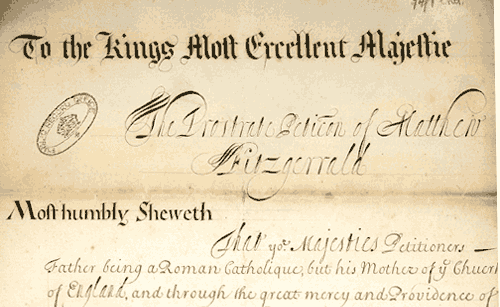 To the Kings Most Excellent Majestie
The Prostrate Peticon of Matthew
Fitzgerrald
Most humbly Sheweth
That yor Majesties Petitioners
Father being a Roman Catholique, but his Mother of ye Church
of England, and through the great mercy and Providence of